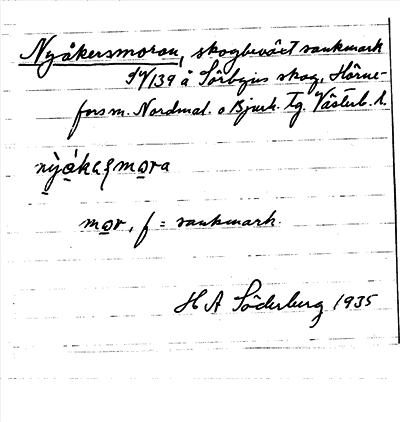 Nyåkersmoran, skogbeväxt sankmark
SV/139 å Sörbyns skog, Hörne-
fors m. Nordmal. o Bjurh. Tg. Västerb. l.
nỳåkaʂmora
mor, f = sankmark.
H A Söderberg 1935